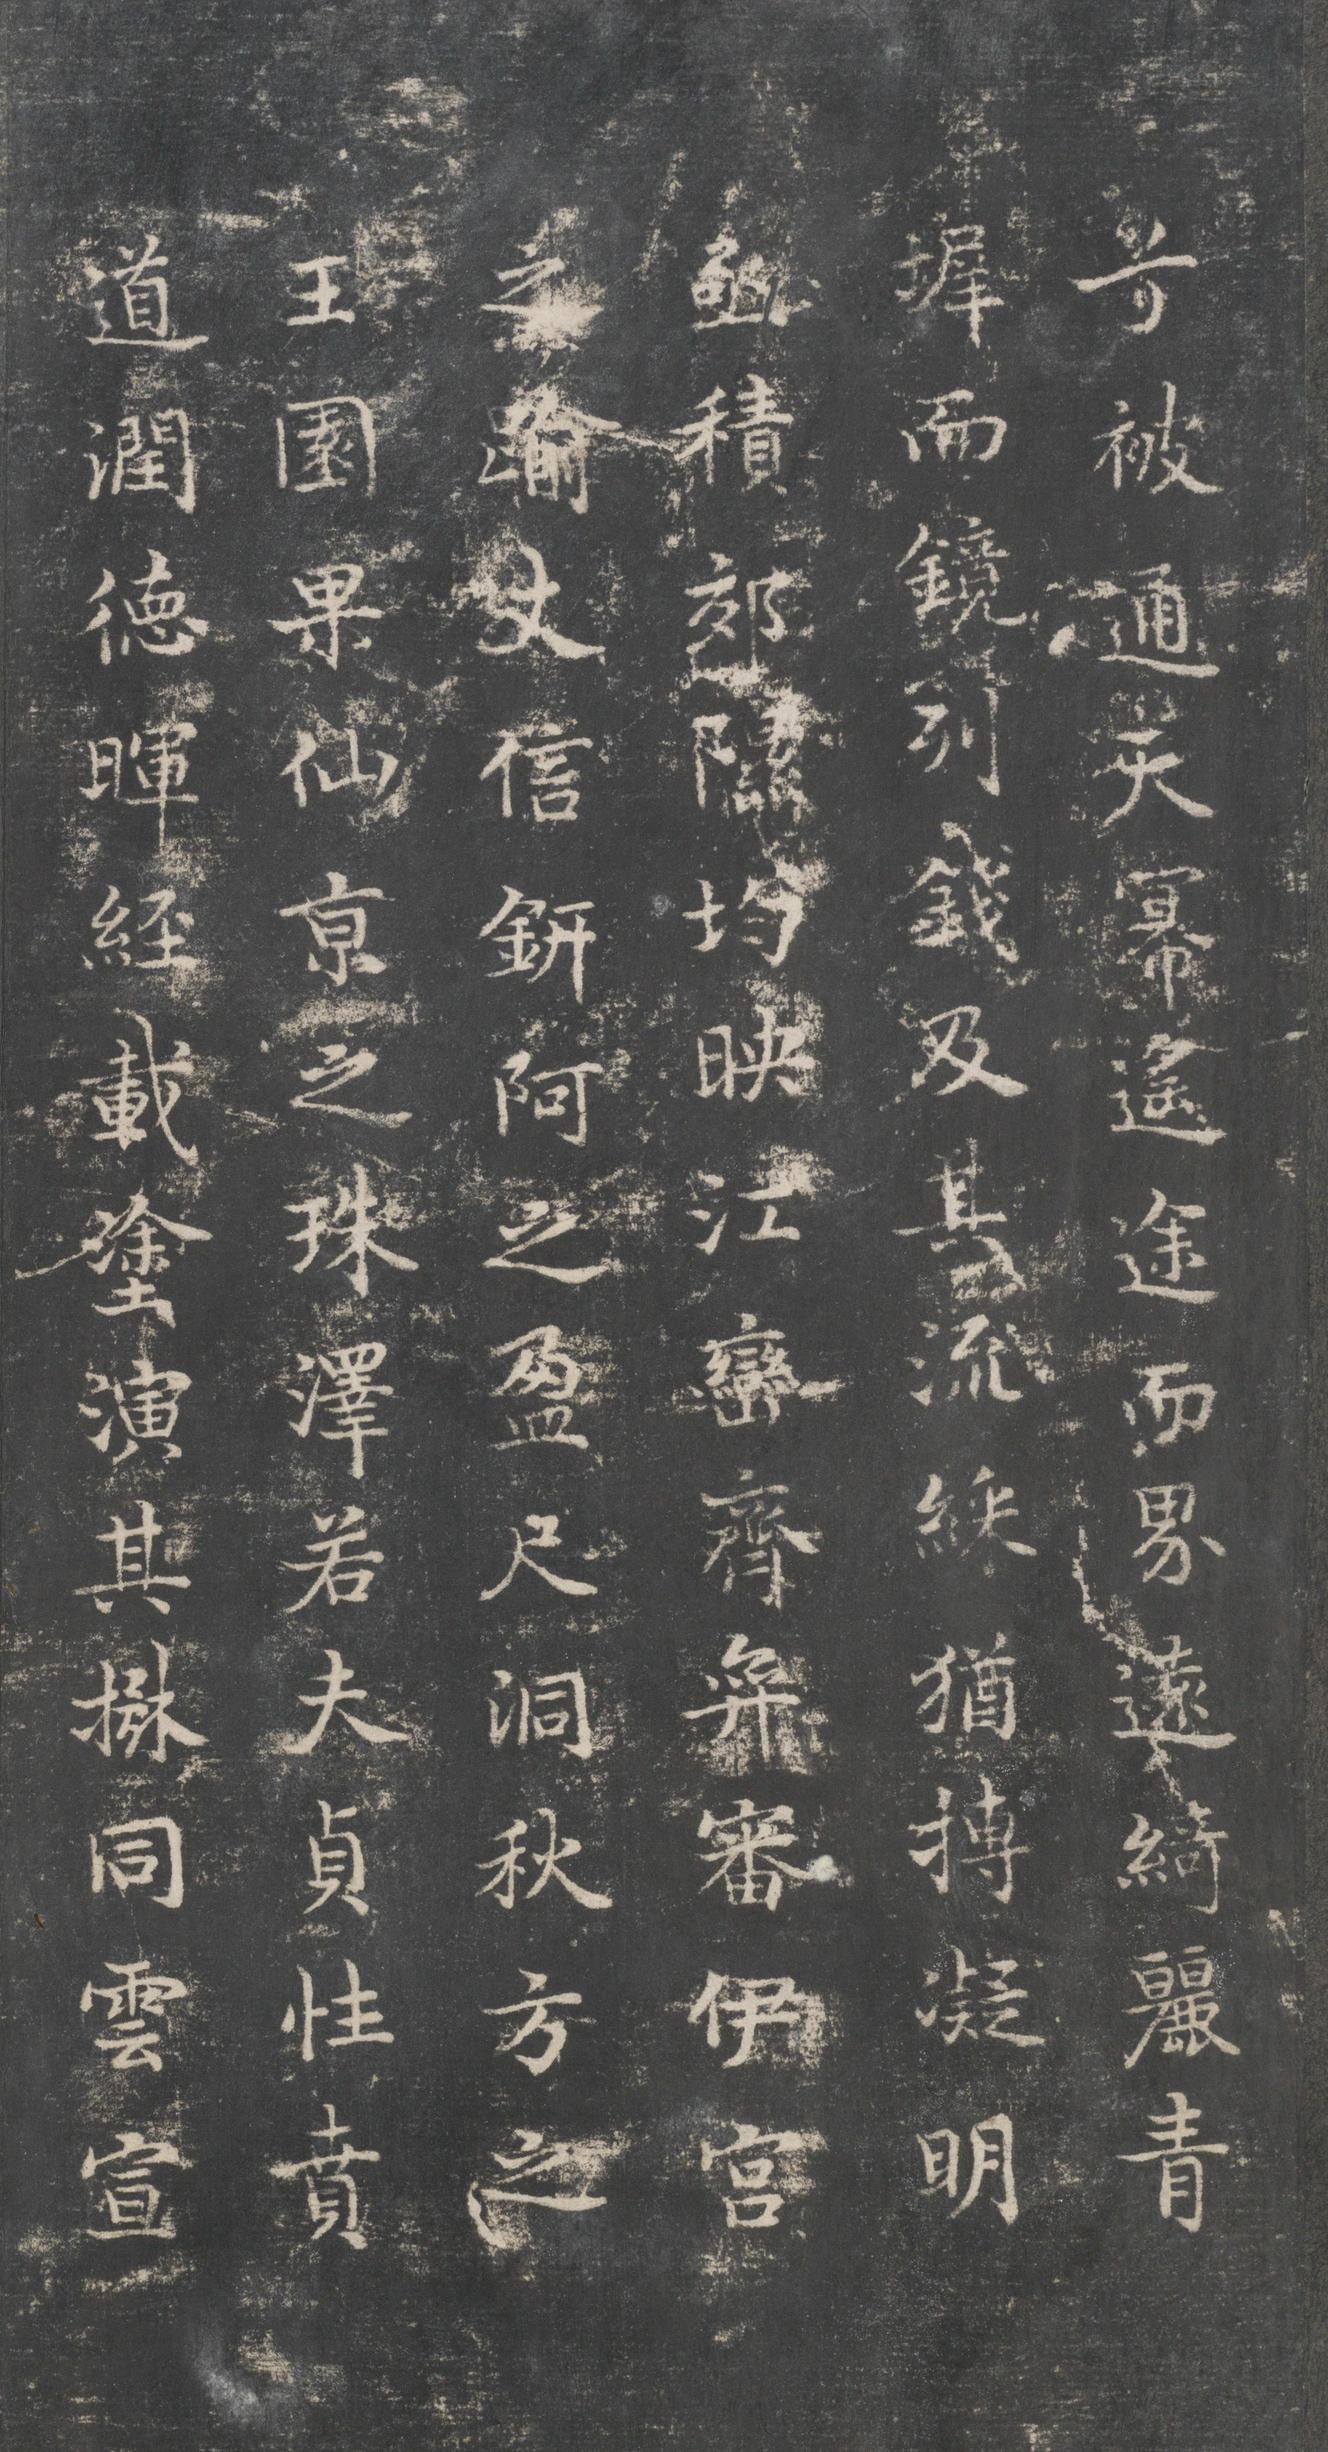 兮被通天冪遙途而界遠綺麗青
墀而鏡列錢及其流綵猶摶凝明
積郊隰均映江巒齊舜審伊宮
之瑜丈信鈃阿之盈尺洞秋方之
王園果仙京之珠澤若夫貞性賁
道潤德暉經載塗演其㩆同雲宣